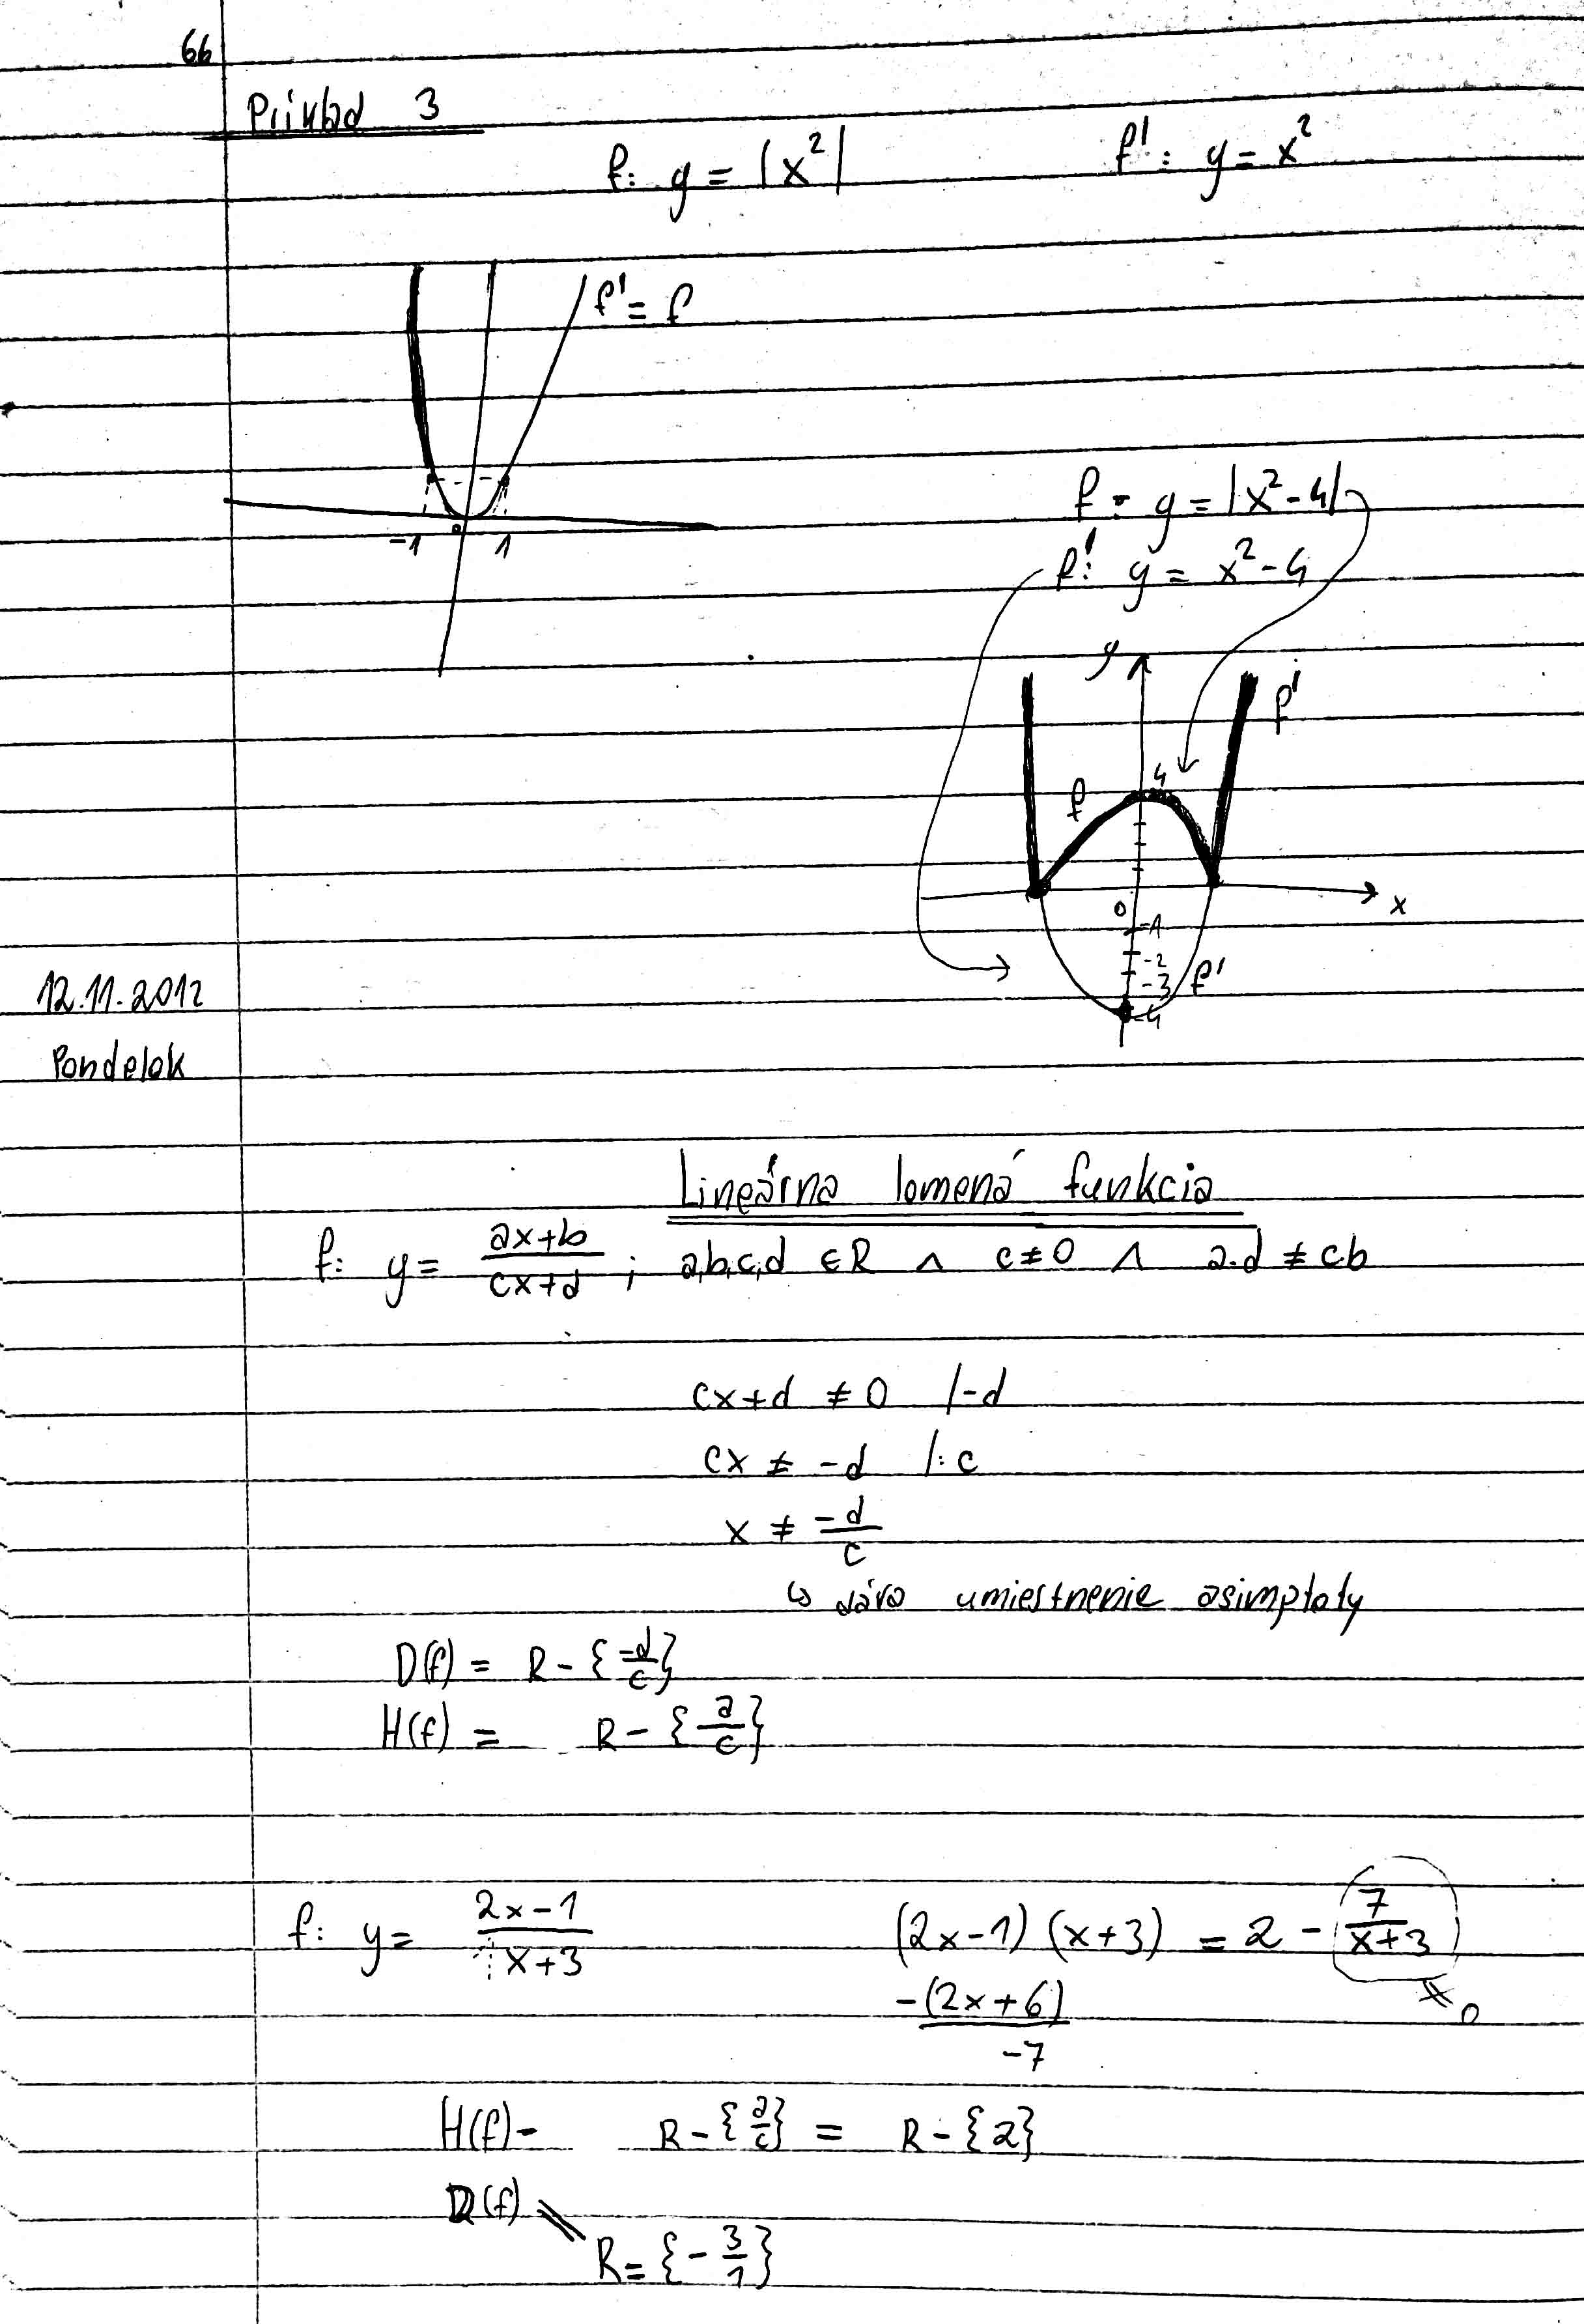 66
Príklad 3
f: y = |x²| f': y = x²
f' = f
-1 0 1
f = y = |x²-4|
f': y = x²-4
y
f'
4
f
0 x
-1
-2
-3 f'
-4
12.11.2012
Pondelok
Lineárna lomená funkcia
f: y = \frac{ax+b}{cx+d} ; a,b,c,d ∈ R ∧ c≠0 ∧ a.d ≠ cb
cx+d ≠ 0 /-d
cx ≠ -d /:c
x ≠ \frac{-d}{c}
↳ dáva umiestnenie asimptoty
D(f) = R - {\frac{-d}{c}}
H(f) = R - {\frac{a}{c}}
f: y = \frac{2x-1}{x+3} (2x-1) (x+3) = 2 - \frac{7}{x+3}
-(2x+6) ≠ 0
-7
H(f)- R-{\frac{a}{c}} = R-{2}
D(f) =
R = {-\frac{3}{1}}